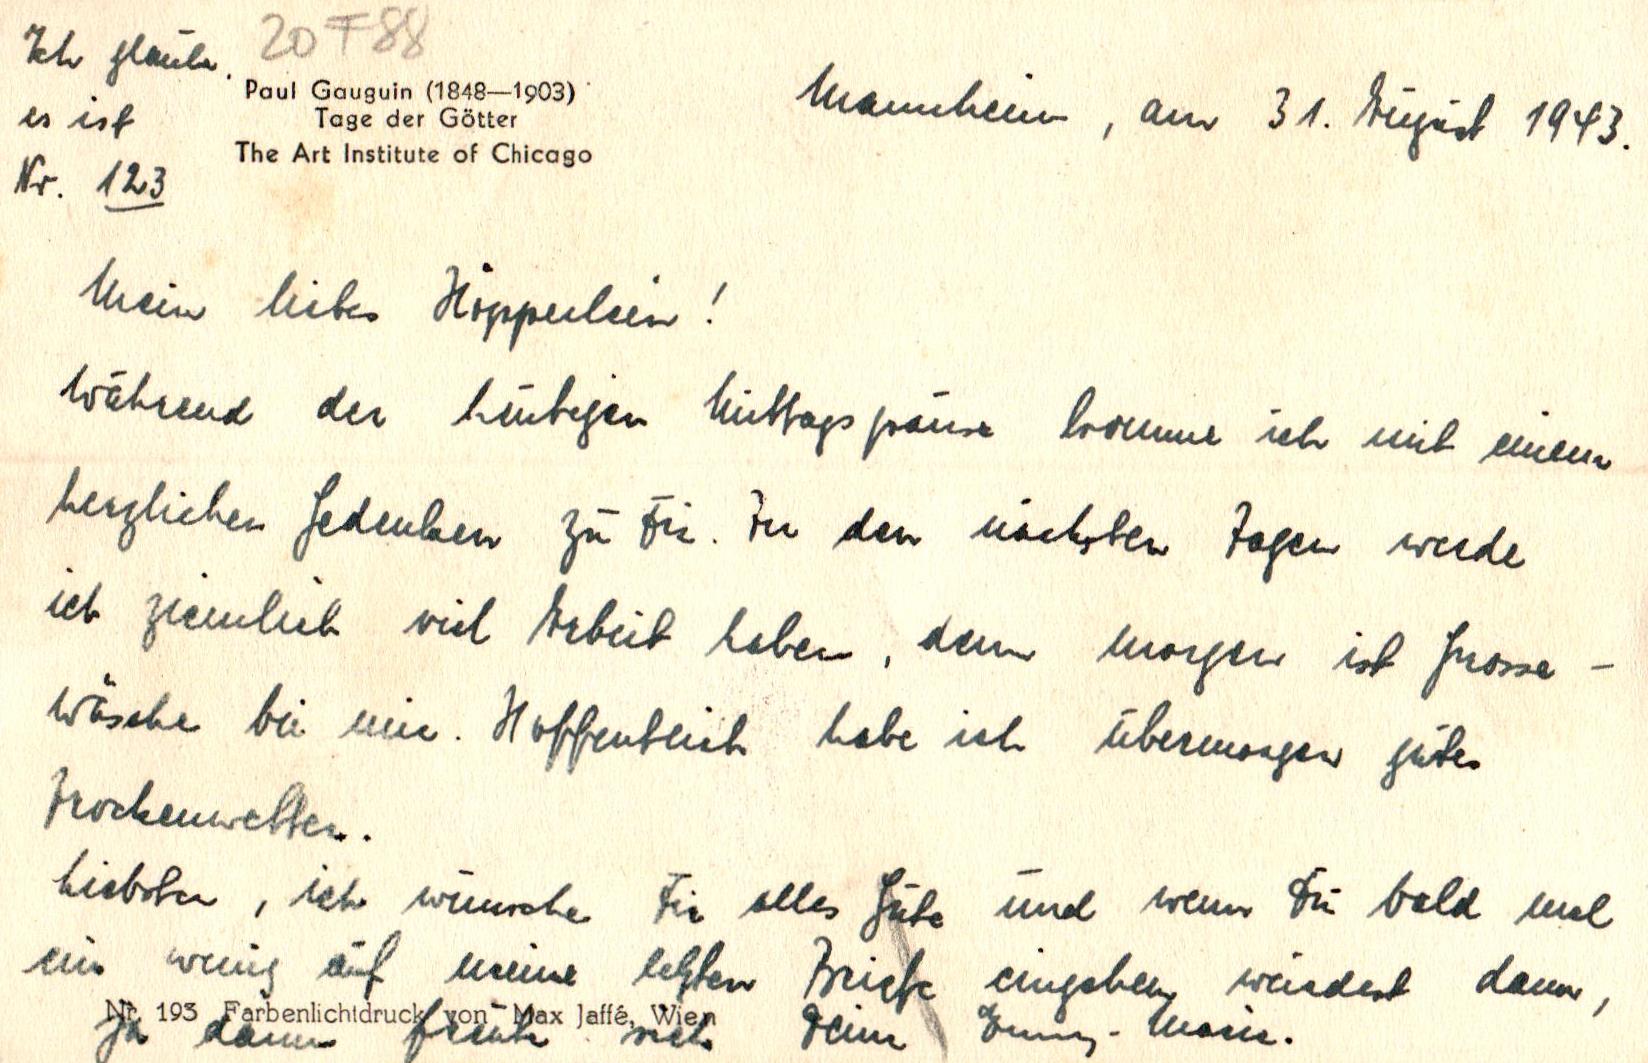 Ich glaube,
es ist
Nr. 123
20 F 88
Paul Gauguin (1848—1903)
Tage der Götter
The Art Institute of Chicago
Mannheim, am 31. August 1943.
Mein liebes Höpperlein!
Während der heutigen Mittagspause komme ich mit einem
herzlichen Gedenken zu Dir. In den nächsten Tagen werde
ich ziemlich viel Arbeit haben, denn morgen ist Grosse-
wäsche bei mir. Hoffentlich habe ich übermorgen gutes
Trockenwetter.
Liebster, ich wünsche Dir alles Gute und wenn Du bald mal
ein wenig auf meine letzten Briefe eingehen würdest dann,
Nr. 193 Farbenlichtdruck von Max Jaffé, Wien
ja dann freute sich Deine Emmy-Marie.